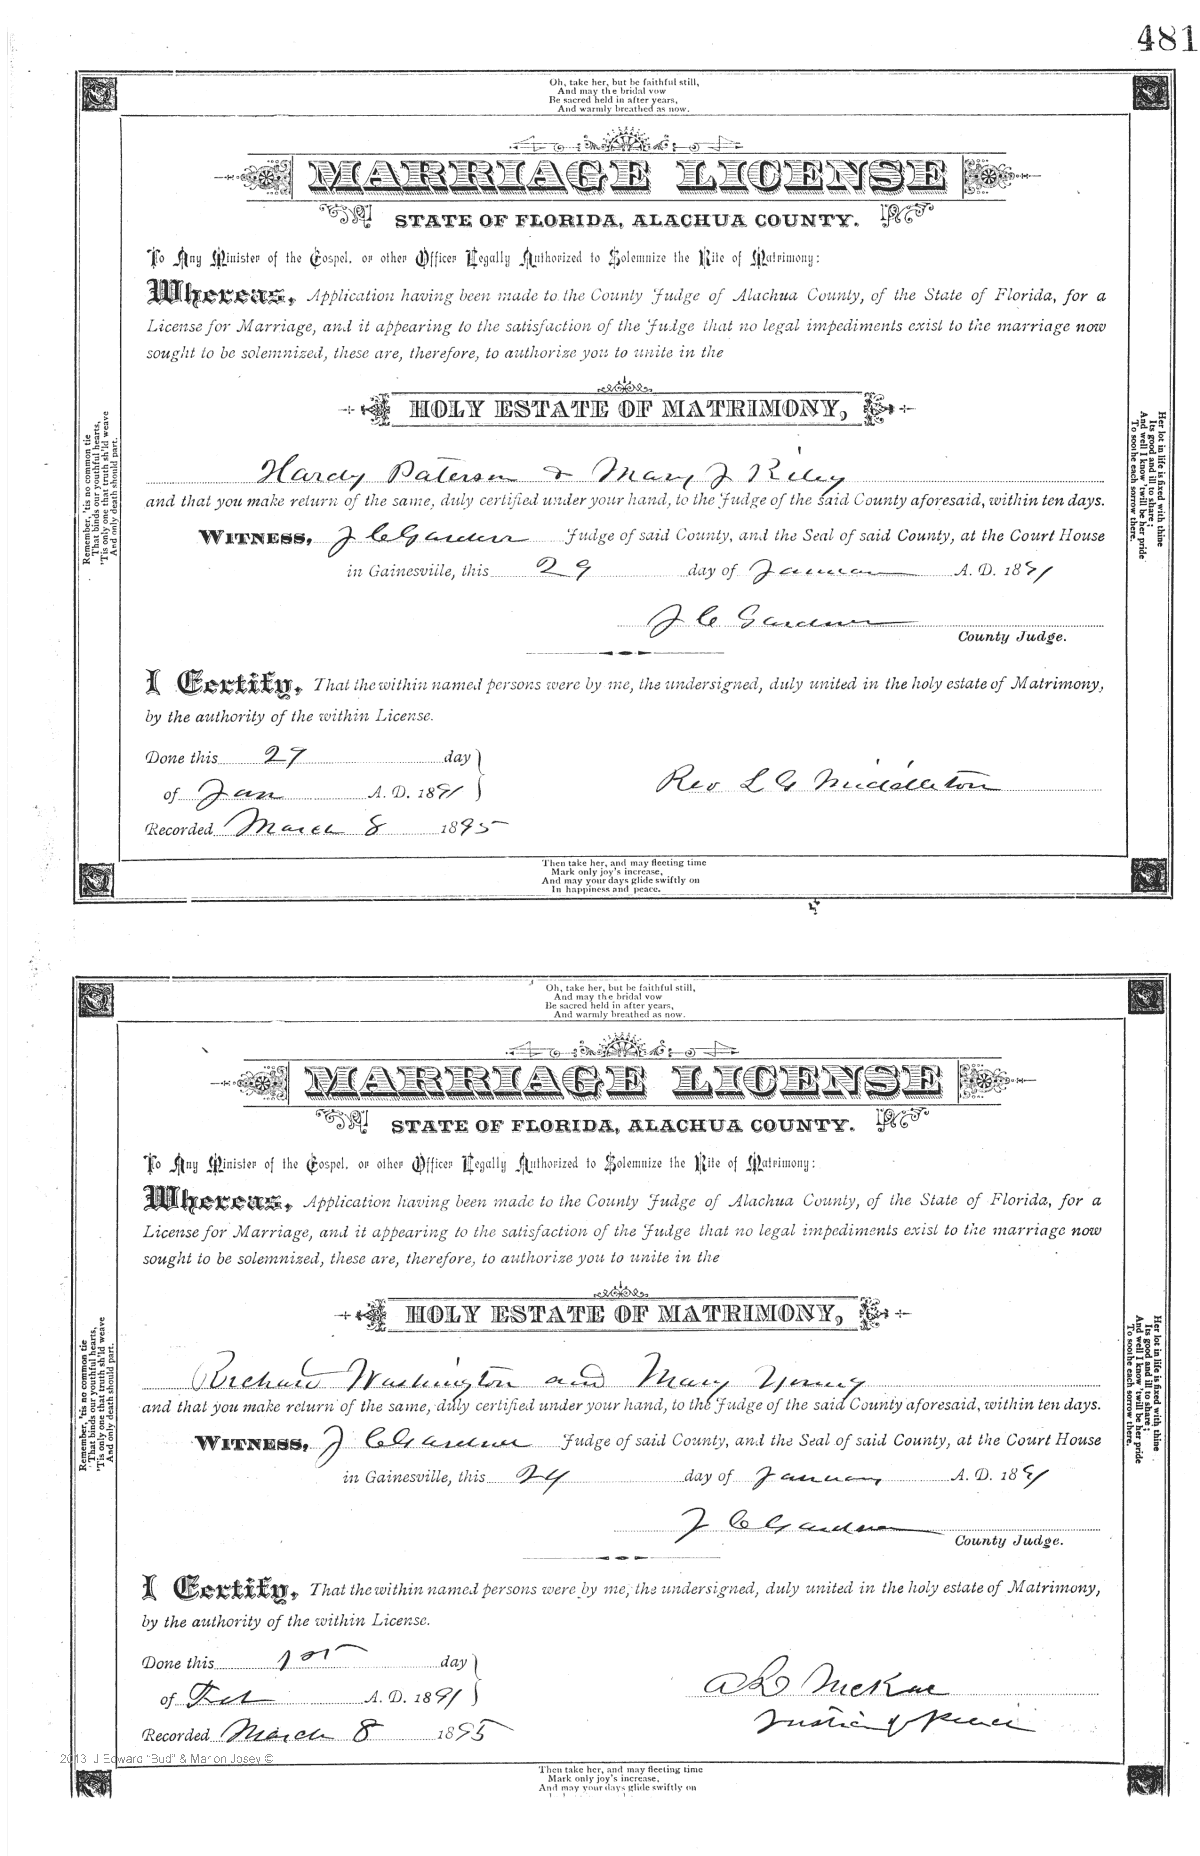 481
Oh, take her, but be faithful still,
And may the bridal vow
Be sacred held in after years,
And warmly breathed as now.
MARRIAGE LICENSE
STATE OF FLORIDA, ALACHUA COUNTY.
To Any Minister of the Gospel, or other Officer Legally Authorized to Solemnize the Rite of Matrimony:
Whereas, Application having been made to the County Judge of Alachua County, of the State of Florida, for a
License for Marriage, and it appearing to the satisfaction of the Judge that no legal impediments exist to the marriage now
sought to be solemnized, these are, therefore, to authorize you to unite in the
HOLY ESTATE OF MATRIMONY,
Hardy Paterson & Mary J Riley
and that you make return of the same, duly certified under your hand, to the Judge of the said County aforesaid, within ten days.
WITNESS, J C Gardner Judge of said County, and the Seal of said County, at the Court House
in Gainesville, this 29 day of January A. D. 1891
J C Gardner
County Judge.
I Certify, That the within named persons were by me, the undersigned, duly united in the holy estate of Matrimony,
by the authority of the within License.
Done this 29 day
of Jan A. D. 1891
Rev L G Middleton
Recorded March 8 1895
Remember, 'tis no common tie
That binds our youthful hearts,
'Tis only one that truth sh'ld weave
And only death should part.
Her lot in life is fixed with thine
Its good and ill to share;
And well I know 'twill be her pride
To soothe each sorrow there.
Then take her, and may fleeting time
Mark only joy's increase,
And may your days glide swiftly on
In happiness and peace.
Oh, take her, but be faithful still,
And may the bridal vow
Be sacred held in after years,
And warmly breathed as now.
MARRIAGE LICENSE
STATE OF FLORIDA, ALACHUA COUNTY.
To Any Minister of the Gospel, or other Officer Legally Authorized to Solemnize the Rite of Matrimony:
Whereas, Application having been made to the County Judge of Alachua County, of the State of Florida, for a
License for Marriage, and it appearing to the satisfaction of the Judge that no legal impediments exist to the marriage now
sought to be solemnized, these are, therefore, to authorize you to unite in the
HOLY ESTATE OF MATRIMONY,
Richard Washington and Mary Young
and that you make return of the same, duly certified under your hand, to the Judge of the said County aforesaid, within ten days.
WITNESS, J C Gardner Judge of said County, and the Seal of said County, at the Court House
in Gainesville, this 24 day of January A. D. 1891
J C Gardner
County Judge.
I Certify, That the within named persons were by me, the undersigned, duly united in the holy estate of Matrimony,
by the authority of the within License.
Done this 1st day
of Feb A. D. 1891
McRae
Justice of Peace
Recorded March 8 1895
Remember, 'tis no common tie
That binds our youthful hearts,
'Tis only one that truth sh'ld weave
And only death should part.
Her lot in life is fixed with thine
Its good and ill to share;
And well I know 'twill be her pride
To soothe each sorrow there.
2013 J Edward "Bud" & Marion Josey ©
Then take her, and may fleeting time
Mark only joy's increase,
And may your days glide swiftly on